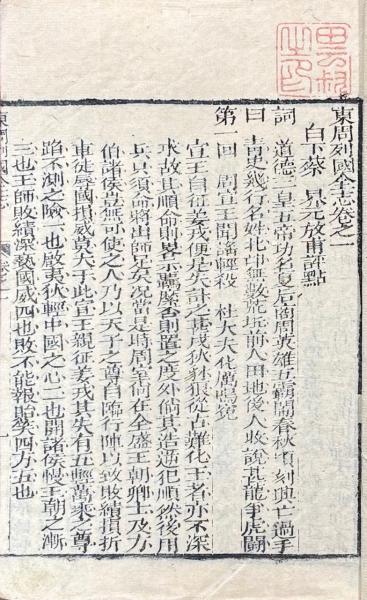 東周列國全志卷之一
白下蔡 昇元放甫評點
詞 道德三皇五帝功名夏后商周英雄五霸鬧春秋頃刻興亡過手
曰 青史幾行名姓北邙無數荒坵前人田地後人收說甚龍爭虎鬪
第一回 周宣王聞謠輕殺 杜大夫化厲鳴冤
宣王自征姜戎便是失計之甚戎狄豺狼從古難化王者亦不深
求故其順命則畧示羈縻否則置之度外倘其造逆犯順然後用
兵只須命將出師足矣況當是時周室尚在全盛王朝卿士及方
伯諸侯豈無可使之人乃以天子之尊自臨行陣以致敗績損折
車徒辱國損威莫大于此宣王親征姜戎其失有五輕萬乘之尊
蹈不測之險一也啟夷狄輕中國之心二也開諸侯慢王朝之漸
三也王師敗績深褻國威四也敗不能報貽笑四方五也
東周列國全志